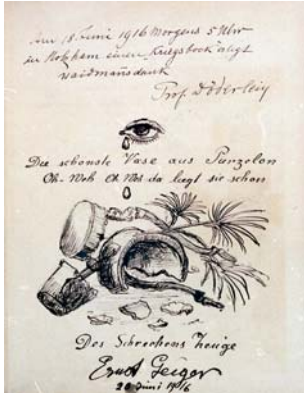 Am 15. Juni 1916 Morgens 5 Uhr
in Holzham einen Kriegsbock
waidmannsdank
Prof. Döderlein
Die schönste Vase aus Purzelan
Oh-Weh Oh Weh da liegt sie schon
Des Schreckens Zeuge
Ernst Geiger
20 Juni 1916